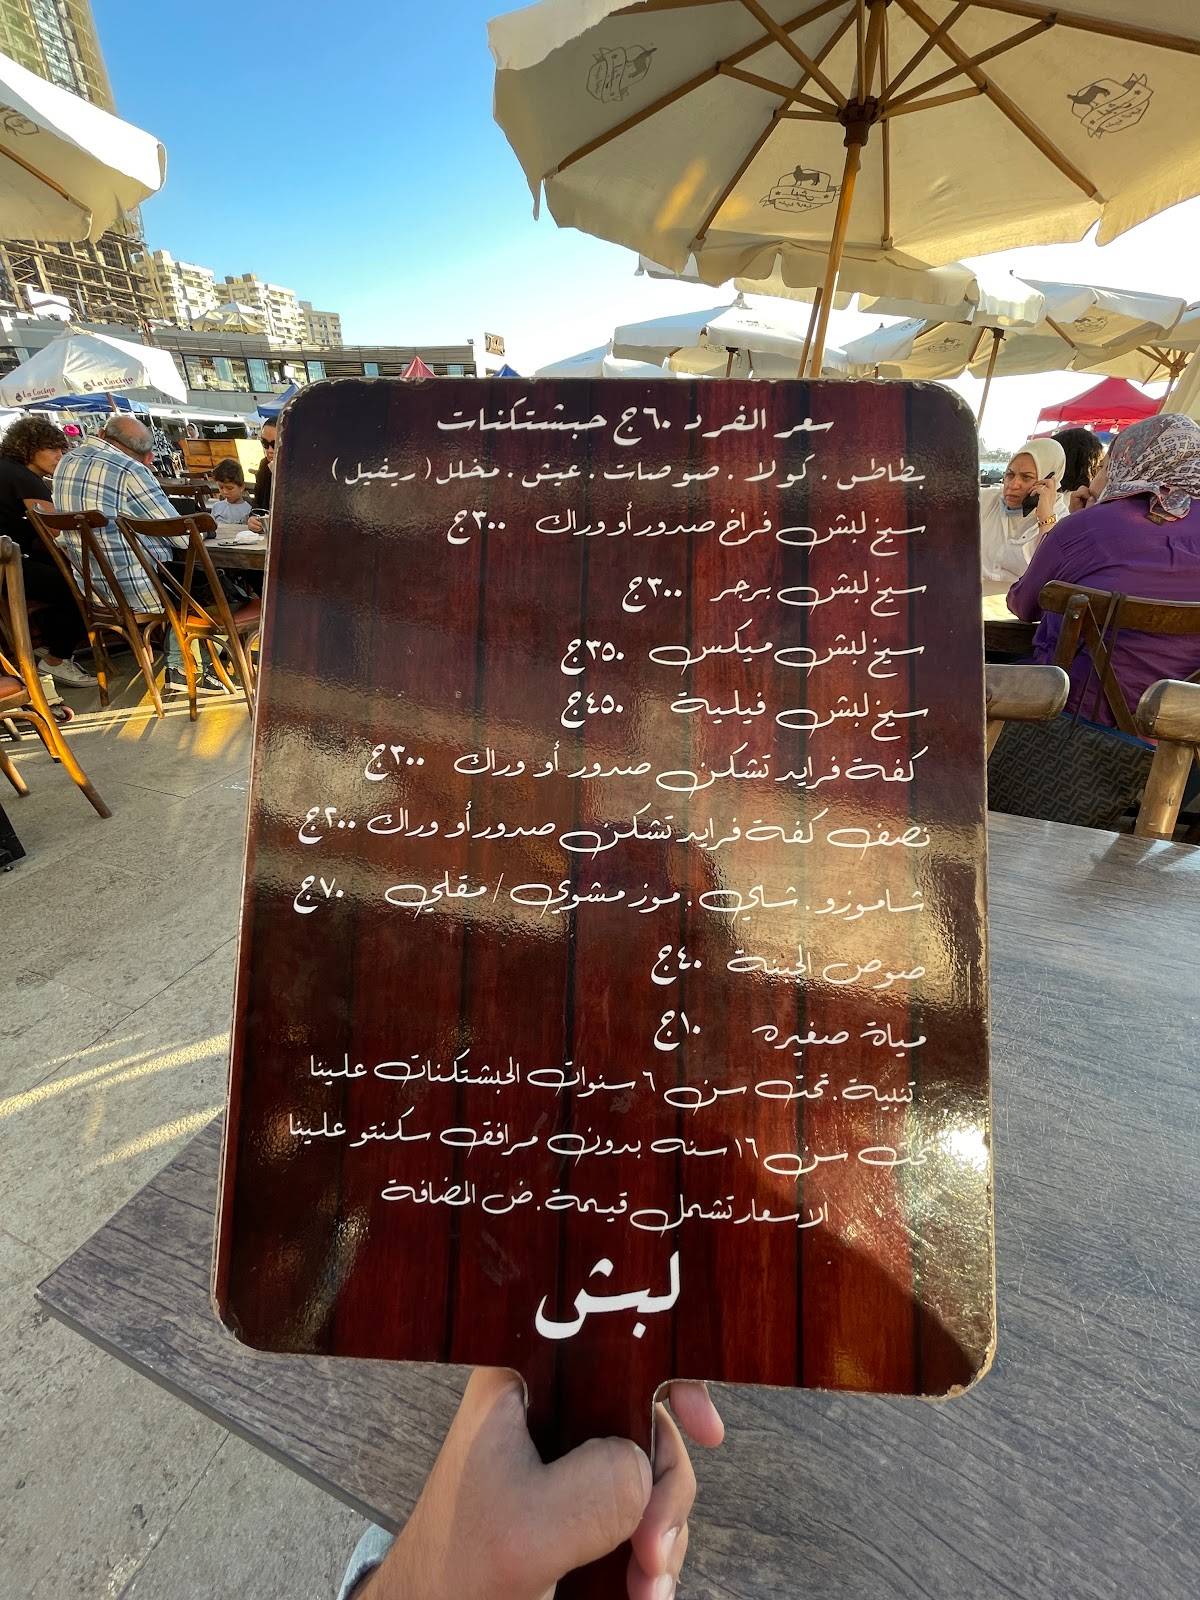 سعر الفرد ٦٠ج حبشتكنات
بطاطس . كولا . صوصات . عيش . مخلل ( ريفيل )
سيخ لبش فراخ صدور أو وراك ٣٠٠ج
سيخ لبش برجر ٣٠٠ج
سيخ لبش ميكس ٣٥٠ج
سيخ لبش فيلية ٤٥٠ج
كفة فرايد تشكن صدور أو وراك ٣٠٠ج
نصف كفة فرايد تشكن صدور أو وراك ٢٠٠ج
شاموزو . شلي . موز مشوي / مقلي ٧٠ج
صوص الجبنة ٤٠ج
مياة صغيره ١٠ج
تنبية . تحت سن ٦ سنوات الحبشتكنات علينا
تحت سن ١٦ سنه بدون مرافق سكنتو علينا
الاسعار تشمل قيمة . ض المضافة
لبش
La Cucina